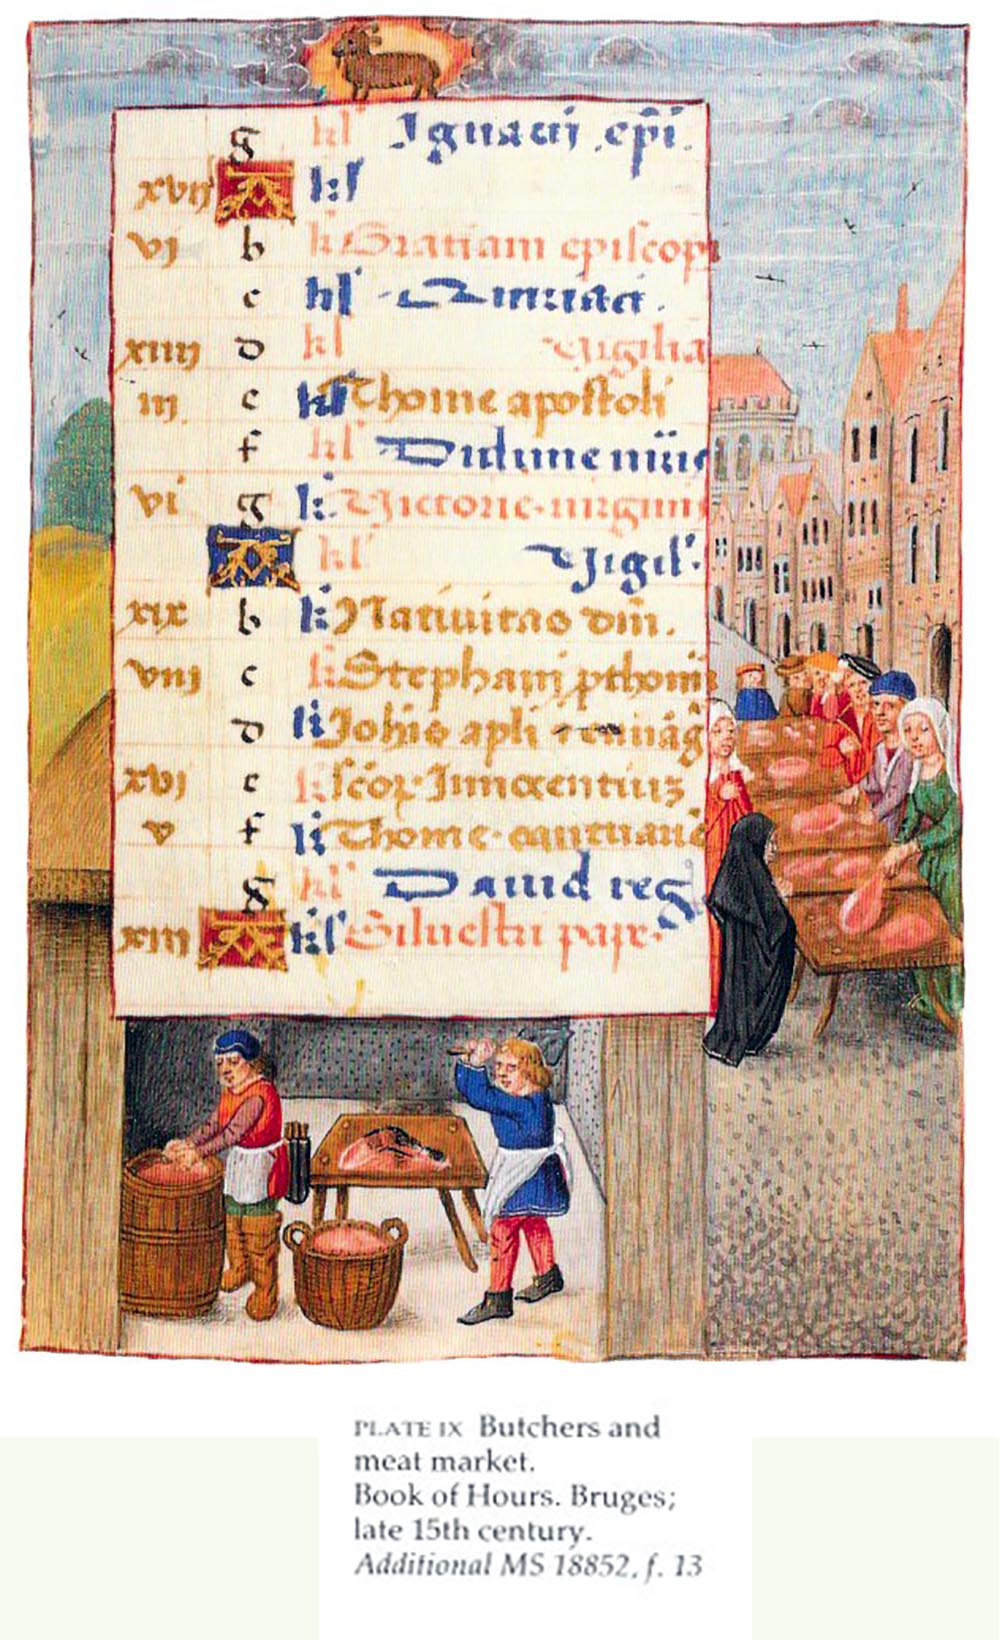 g kl Ignacij epi.
xvij A kl
vj b k Gratiani episcopi
c kl
xiiij d kl Vigilia
iij e kl Thome apostoli
f kl
vi g k Victorie virginis
A kl Vigil'
xix b k Nativitas dni.
viij c k Stephani pthom
d k Johis apli
xvj e k scor Innocentium
v f k Thome
g kl David reg
xiij A kl Silvestri pape
PLATE IX Butchers and
meat market.
Book of Hours. Bruges;
late 15th century.
Additional MS 18852, f. 13